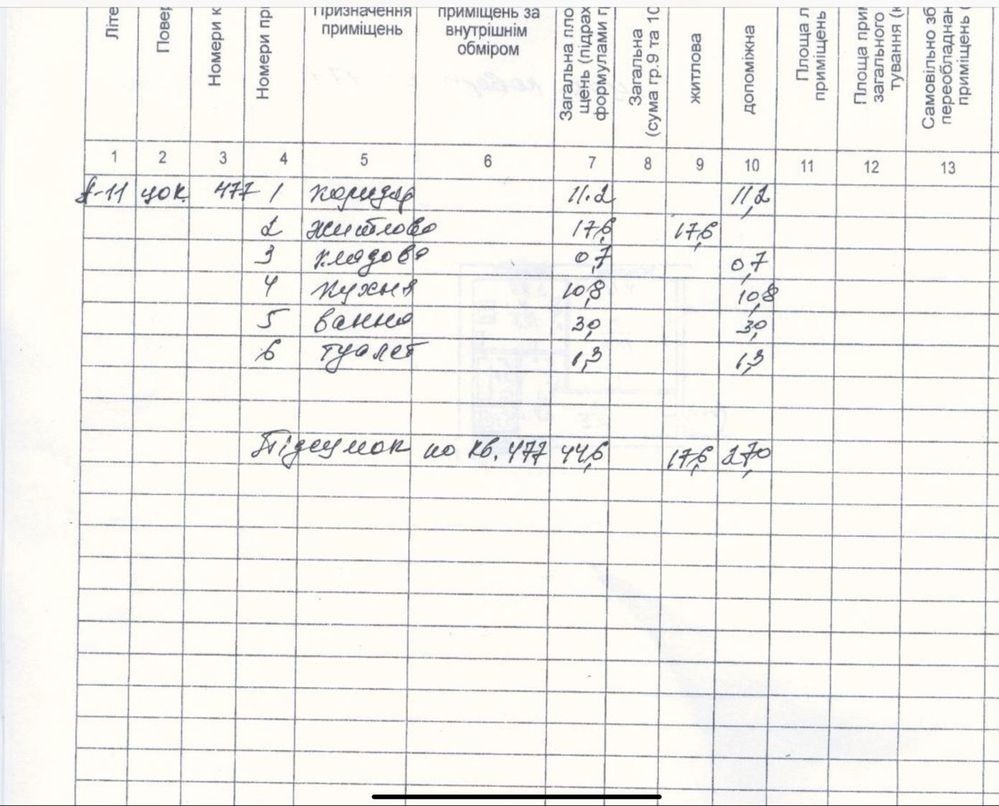 Літе
Повер
Номери к
Номери при
Призначення
приміщень
приміщень за
внутрішнім
обміром
Загальна пло
щень (підрах
формулами г
Загальна
(сума гр.9 та 10
житлова
допоміжна
Площа л
приміщень
Площа прим
загального
тування (к
Самовільно зб
переобладнан
приміщень (
1 2 3 4 5 6 7 8 9 10 11 12 13
-11 цок 477 1 коридор 11.2 11,2
2 житлова 17,6 17,6
3 кладова 0,7 0,7
4 кухня 10,8 10,8
5 ванна 3,0 3,0
6 туалет 1,3 1,3
Підсумок по кв. 477 44,6 17,6 27,0